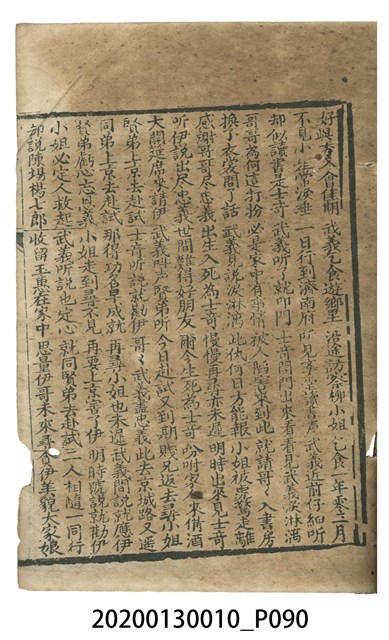 好與文人會佳期 武義乞食遊鄉里 沿途訪察柳小姐 乞食一年零三月
不見小姐淚垂 一日行到濟南府 所見琴堂讀書聲 武義近前仔細听
却似讀書是士奇 武義听了就叩門 士奇開門出來看 看見武義淚淋漓
哥哥為何這打扮 必是家中有事情 被人陷害來到此 就請哥哥入書房
換了衣裳問了話 武義説淚淋漓 此仇何日方能報 小姐被害走離
感謝哥哥尽忠義 出生入死為士奇 慢慢再尋未遲 明時出來見士奇
听伊説出尽忠義 世間難得好朋友 今生死為士奇 吩咐家人來俻酒
大開筵席來請伊 武義听声賢弟听 今日赴試又到期 賊兄返去尋小姐
賢弟上京去赴試 士奇听説就勸伊 哥哥武義盡忠義 此去京城路又遥
同弟上京去赴試 那得功名早成就 再尋小姐也未遲 武義聞説就應伊
賢弟虧心忘恩義 小姐走到尋不見 再要士京害了伊 明時聽説就勸伊
小姐必定人救起 武義听説也定心 就同賢弟去赴試 二人相隨一同行
却説陳塲楊七郎 收留玉惠在家中 思量伊哥未來尋 今伊美貌大家娘
20200130010_P090